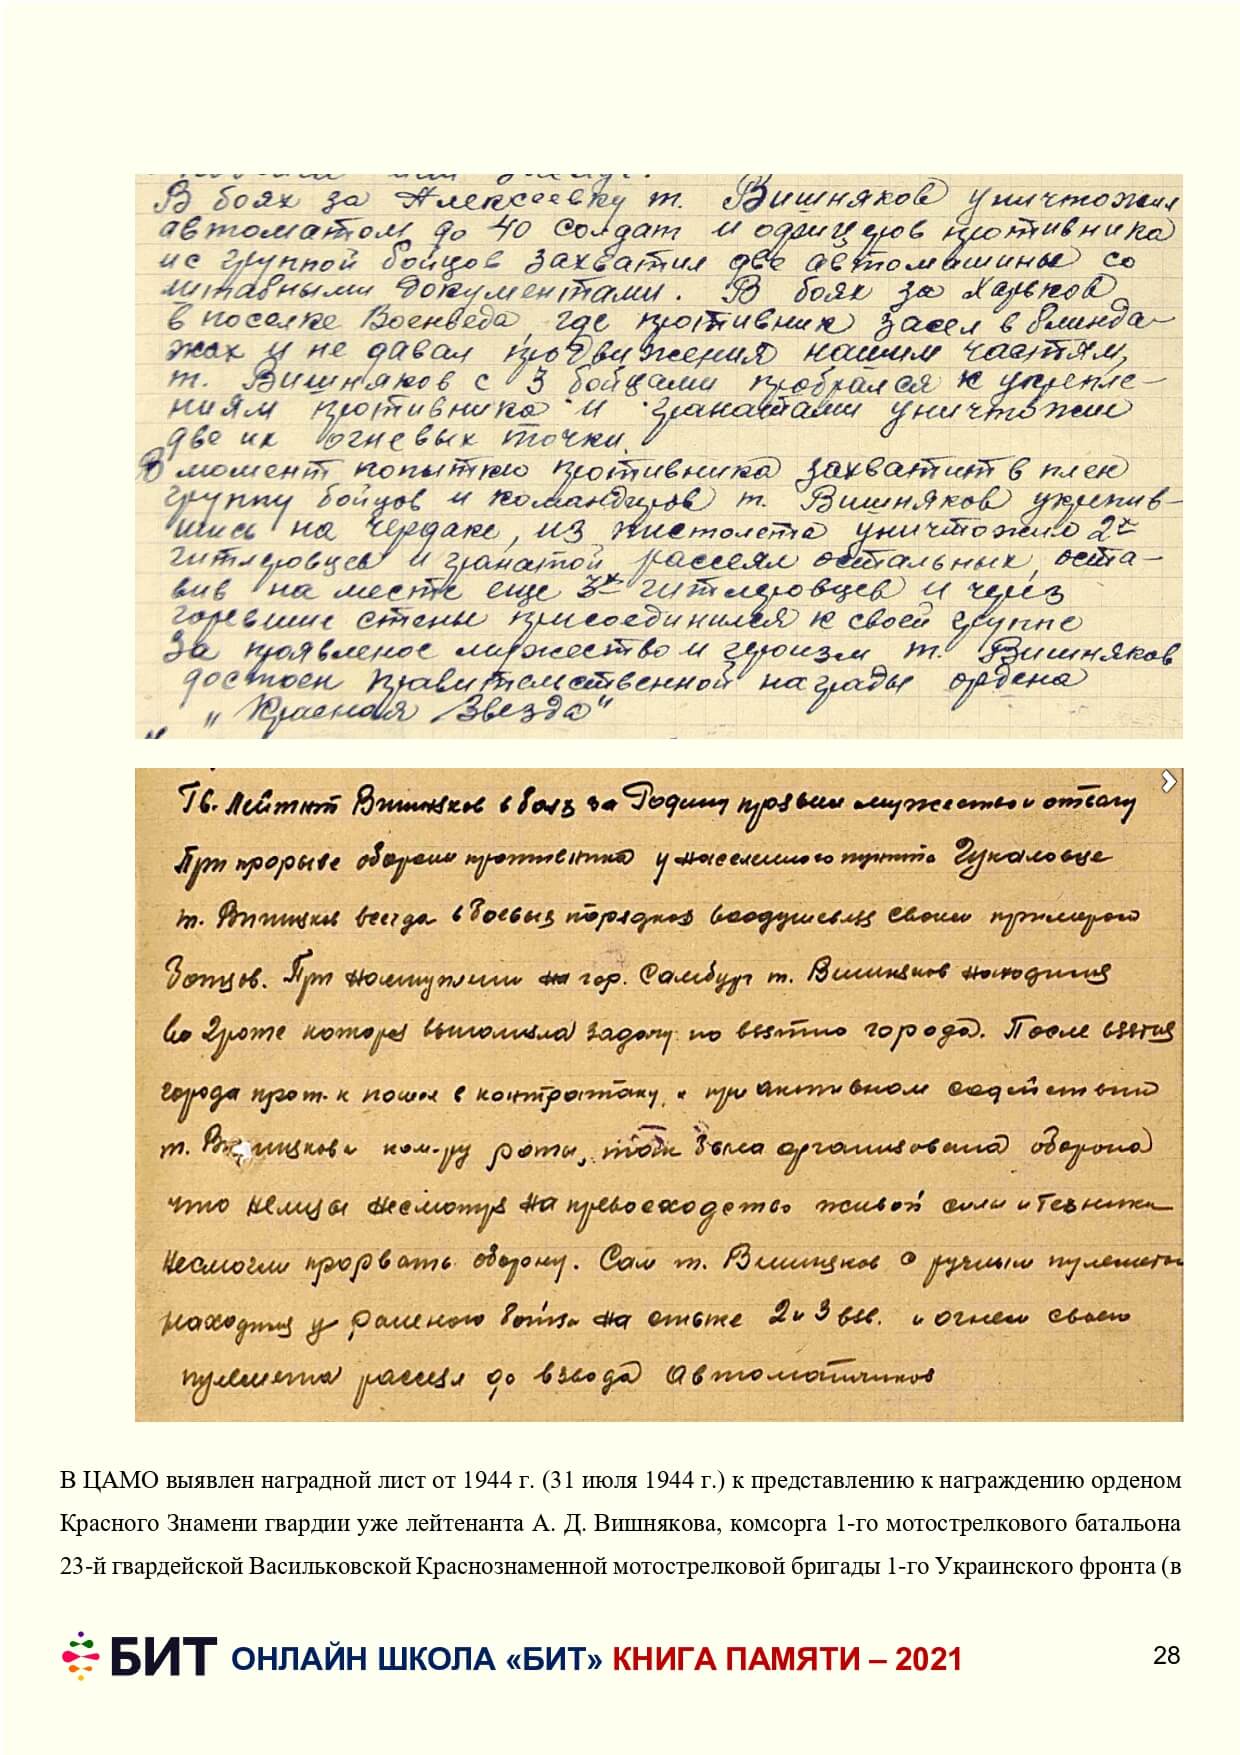 В боях за Алексеевку т. Вишняков уничтожил
автоматом до 40 солдат и офицеров противника
и с группой бойцов захватил две автомашины со
штабными документами. В боях за Харьков
в поселке Военведа, где противник засел в блинда-
жах и не давал продвижения нашим частям,
т. Вишняков с 3 бойцами пробрался к укрепле-
ниям противника и гранатами уничтожил
две их огневых точки.
В момент попыткю противника захватит в плен
группу бойцов и командиров т. Вишняков укрепив-
шись на чердаке, из пистолета уничтожил 2х
гитлеровцев и гранатой рассеял остальных, оста-
вив на месте еще 3х гитлеровцев и через
горевшие стены присоединился к своей группе
За проявленое мужество и героизм т. Вишняков
достоен правительственной награды ордена
„Красная Звезда"
Гв. Лейтнт Вишняков в боях за Родину проявил мужество и отвагу
При прорыве обороны противника у населенного пункта Гукаловце
т. Вишняков всегда в боевых порядках воодушевлял своим примером
бойцов. При наступлении на гор. Самбург т. Вишняков находился
во 2 роте которая выполняла задачу по взятию города. После взятия
города прот-к пошел в контратаку, и при активном содействии
т. Вишнякова ком-ру роты, была организована оборона
что немцы несмотря на превосходство живой силы и техники
несмогли прорвать оборону. Сам т. Вишняков с ручным пулеметом
находился у раненого бойца на стыке 2 и 3 взв. и огнем своего
пулемета рассеял до взвода автоматчиков
В ЦАМО выявлен наградной лист от 1944 г. (31 июля 1944 г.) к представлению к награждению орденом
Красного Знамени гвардии уже лейтенанта А. Д. Вишнякова, комсорга 1-го мотострелкового батальона
23-й гвардейской Васильковской Краснознаменной мотострелковой бригады 1-го Украинского фронта (в
БИТ ОНЛАЙН ШКОЛА «БИТ» КНИГА ПАМЯТИ – 2021 28